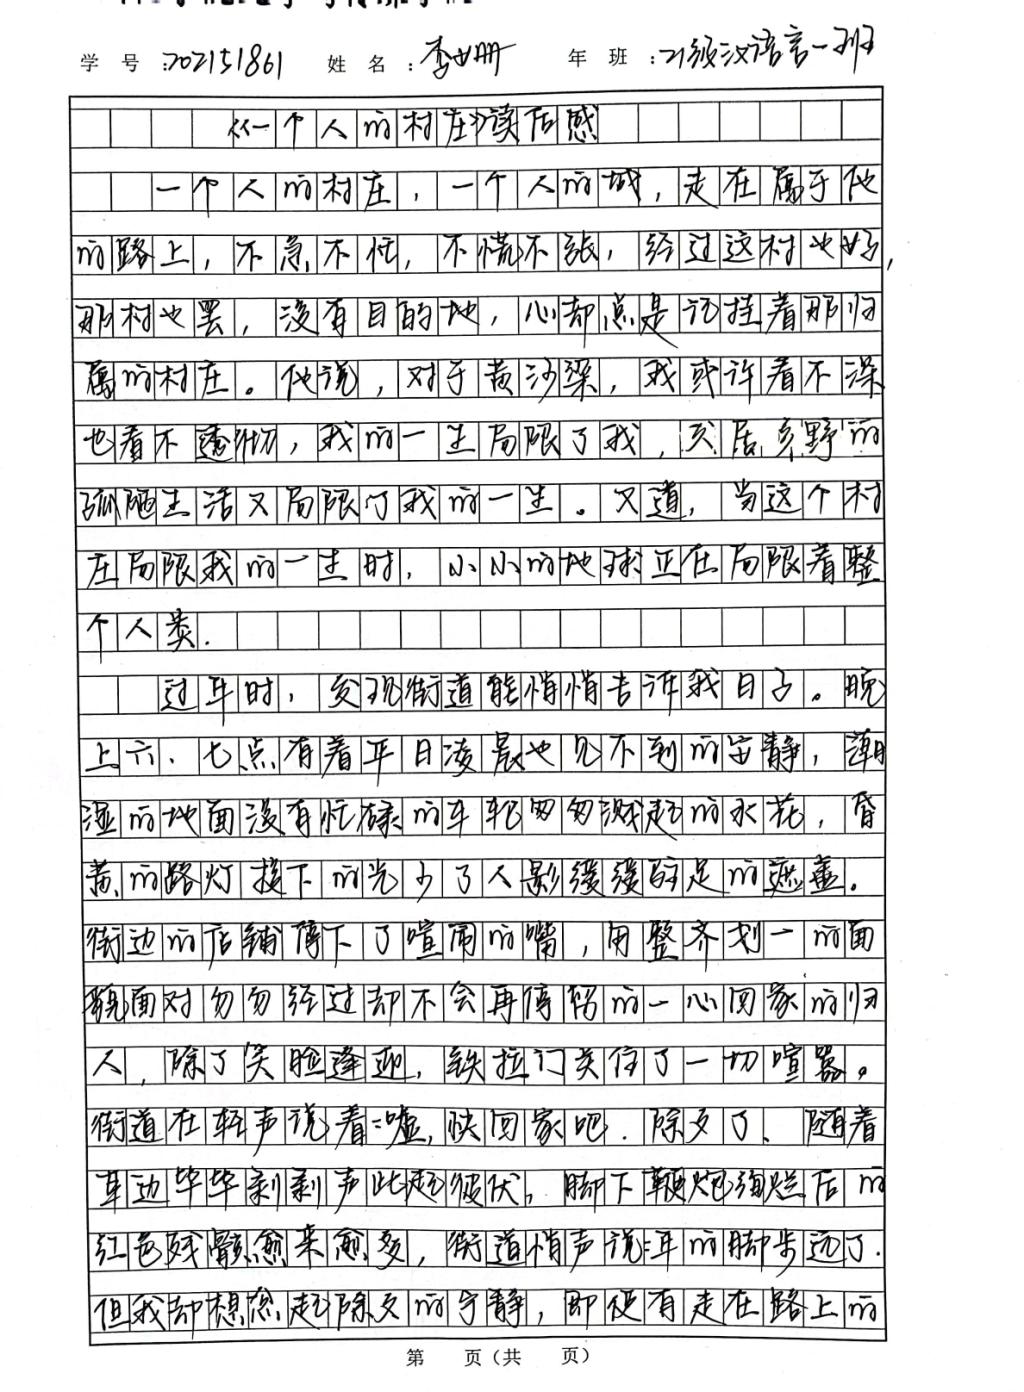 学 号 :202151861 姓 名 : 李如珊 年 班 : 21级汉语言一班
《一个人的村庄》读后感
一个人的村庄，一个人的城，走在属于他
的路上，不急不忙，不慌不张，经过这村也好，
那村也罢，没有目的地，心却总是记挂着那归
属的村庄。他说，对于黄沙梁，我或许看不深
也看不透彻，我的一生局限了我，久居荒野的
孤陋生活又局限了我的一生。又道，当这个村
庄局限我的一生时，小小的地球正在局限着整
个人类.
过年时，发现街道能悄悄告诉我日子。晚
上六、七点有着平日凌晨也见不到的安静，潮
湿的地面没有忙碌的车轮匆匆溅起的水花，昏
黄的路灯投下的光少了人影缓缓驻足的遮盖。
街边的店铺停下了喧闹的嘴，用整齐划一的面
貌面对匆匆经过却不会再停留的一心回家的归
人，除了笑脸逢迎，铁拉门关住了一切喧嚣。
街道在轻声说着:嘘,快回家吧.除夕了、随着
耳边毕毕剥剥声此起彼伏，脚下鞭炮绚烂后的
红色残骸愈来愈多，街道悄声说:年的脚步远了.
但我却想念起除夕的宁静，即使有走在路上的
第 页（共 页）